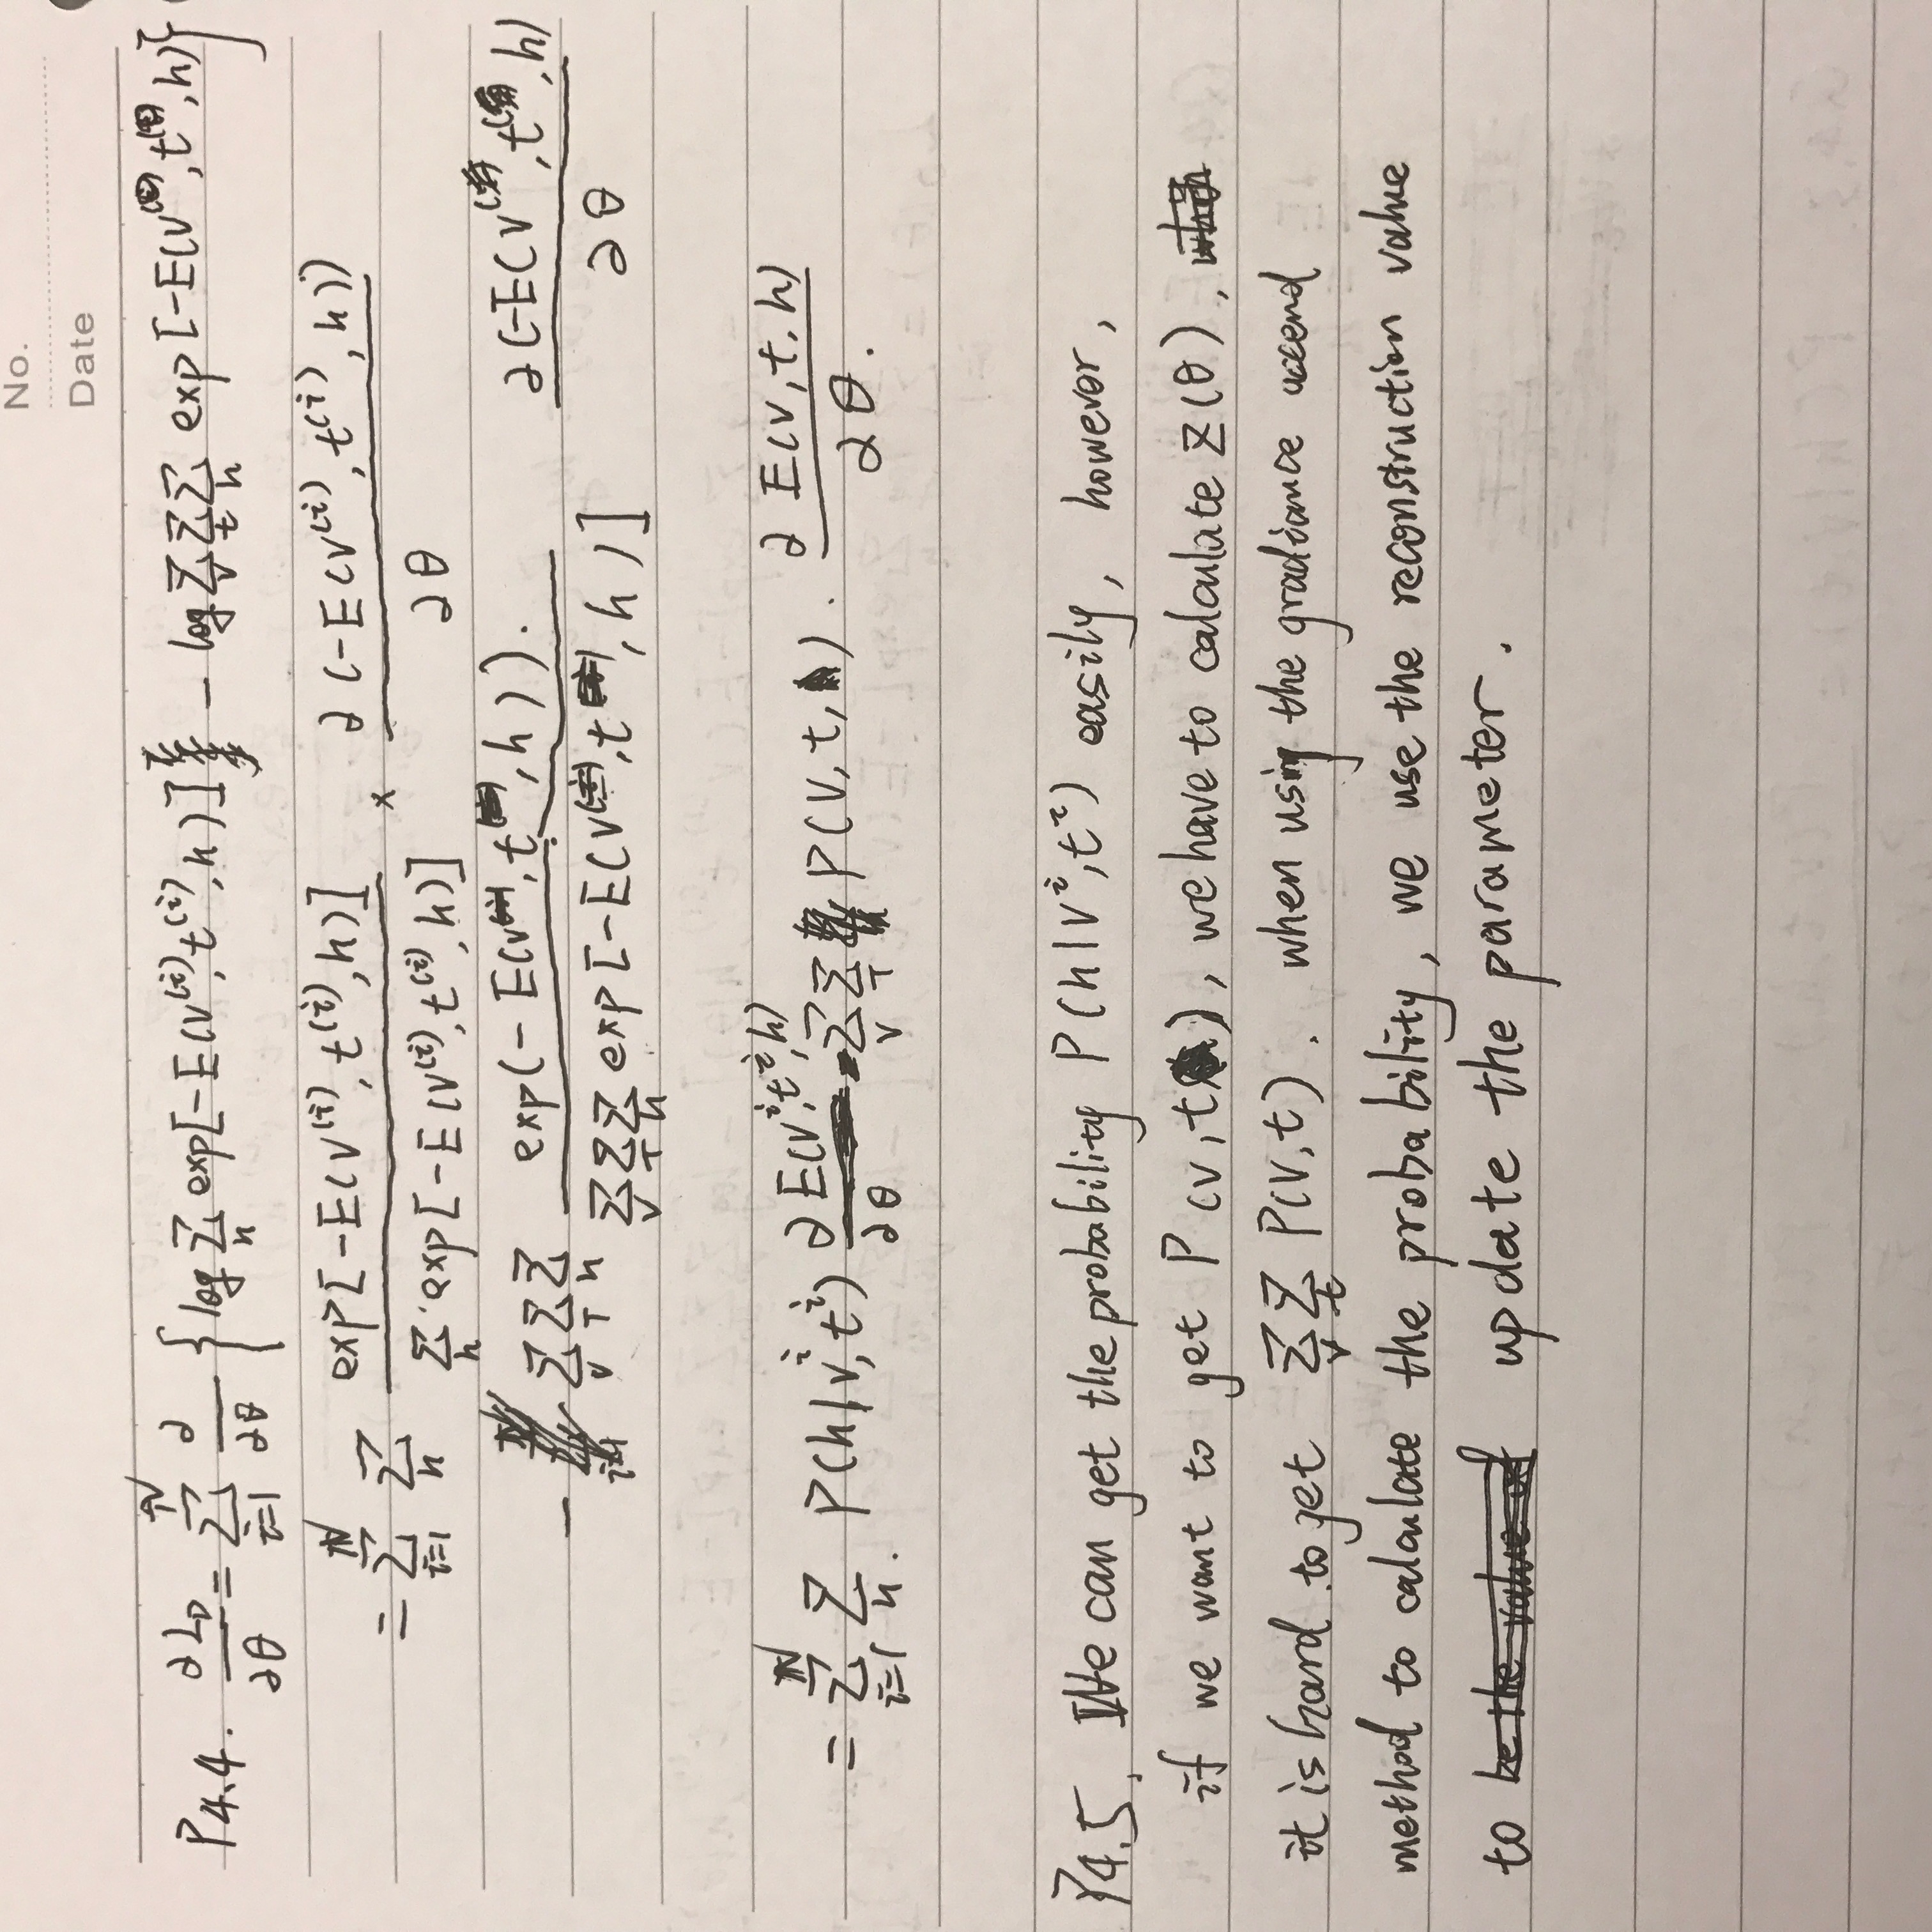 No.
Date
P4.4. ∂L_D/∂θ = Σ_{i=1}^{N} ∂/∂θ { log Σ_h exp[-E(v^(i), t^(i), h)] - log Σ_v Σ_t Σ_h exp[-E(v, t, h) }
= Σ_{i=1}^{N} Σ_h exp[-E(v^(i), t^(i), h)] / Σ_h exp[-E(v^(i), t^(i), h)] × ∂(-E(v^(i), t^(i), h)) / ∂θ
- Σ_v Σ_T Σ_h exp(-E(v, t, h)). / Σ_v Σ_T Σ_h exp[-E(v, t, h)] ∂(-E(v, t, h) / ∂θ
= Σ_{i=1}^{N} Σ_h. P(h|v^i, t^i) ∂E(v^i, t^i, h) / ∂θ - Σ_v Σ_T P(v, t, ). ∂E(v, t, h) / ∂θ.
P4.5. We can get the probability P(h|v^i, t^i) easily, however,
if we want to get P(v, t), we have to calculate Z(θ),
it is hard to get Σ_v Σ_t P(v, t). when using the gradiance accend
method to calculate the probability, we use the reconstruction value
to be the value of update the parameter.